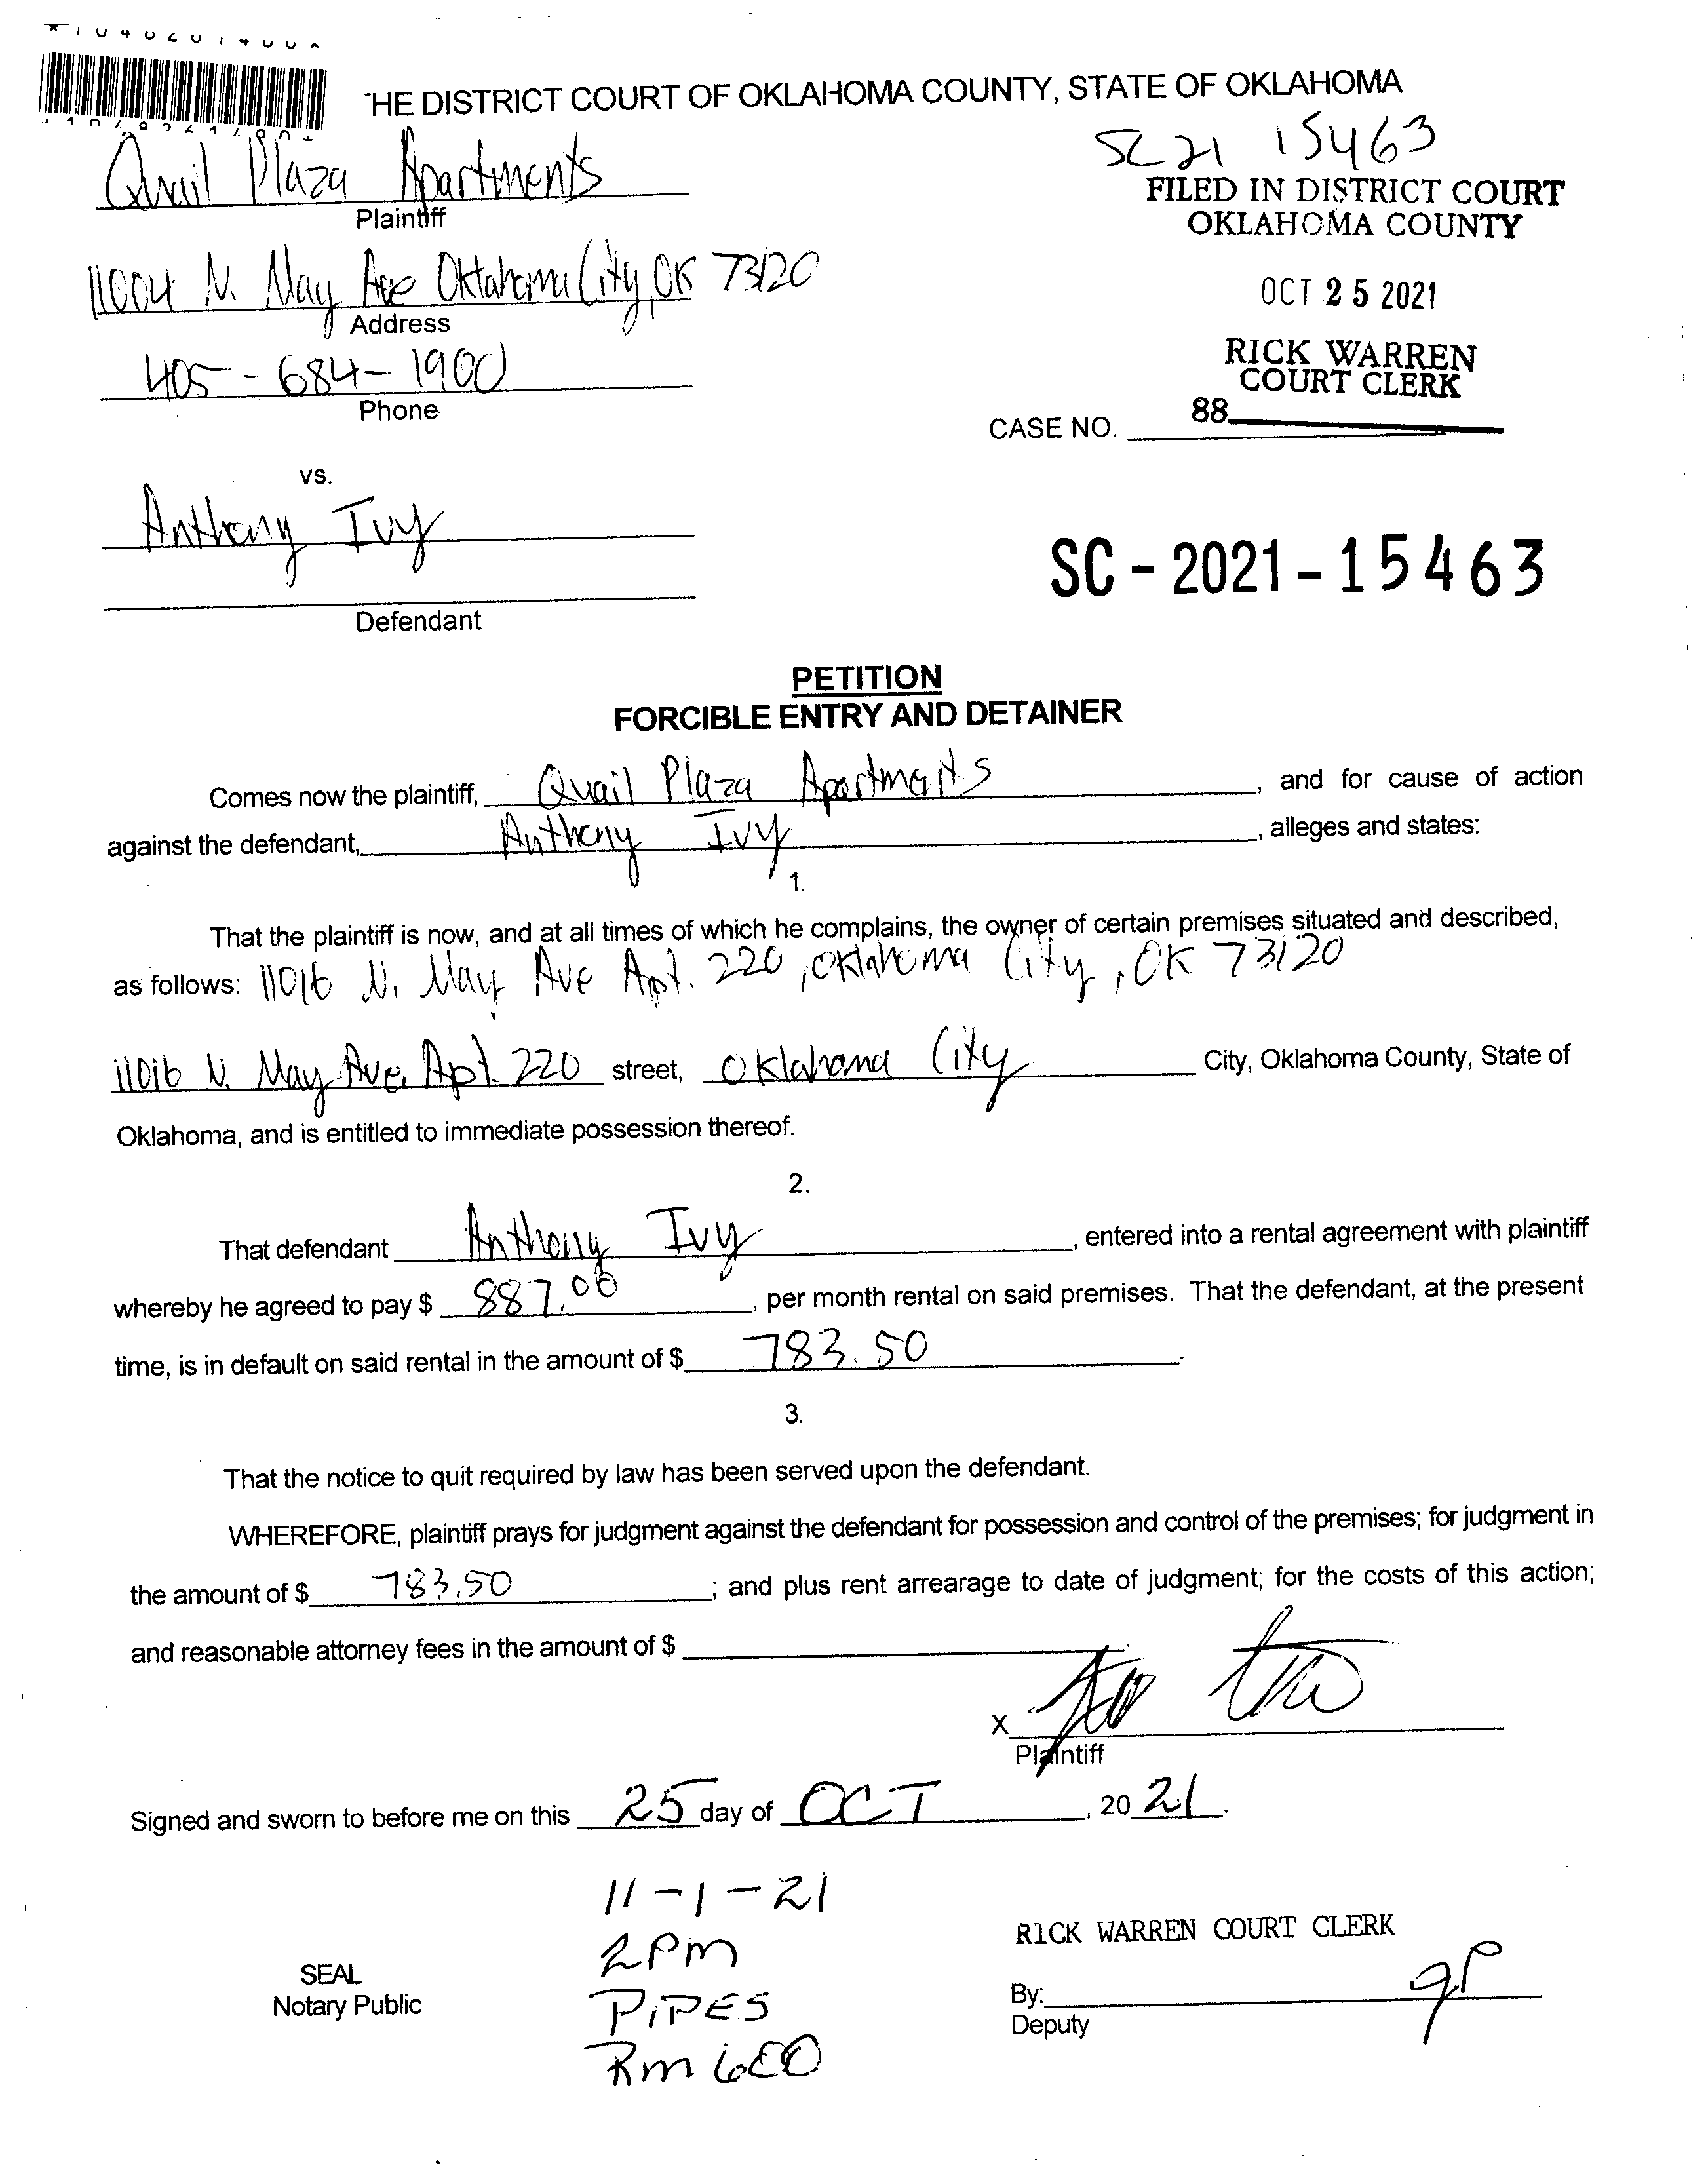 HE DISTRICT COURT OF OKLAHOMA COUNTY, STATE OF OKLAHOMA
SC 21 15463
Quail Plaza Apartments
Plaintiff
FILED IN DISTRICT COURT
OKLAHOMA COUNTY
11004 N. May Ave Oklahoma City, OK 73120
Address
OCT 25 2021
405-684-1900
Phone
RICK WARREN
COURT CLERK
88
CASE NO.
vs.
Anthony Ivy
Defendant
SC-2021-15463
PETITION
FORCIBLE ENTRY AND DETAINER
Comes now the plaintiff, Quail Plaza Apartments, and for cause of action
against the defendant, Anthony Ivy, alleges and states:
1.
That the plaintiff is now, and at all times of which he complains, the owner of certain premises situated and described,
as follows: 11016 N. May Ave Apt. 220, Oklahoma City, OK 73120
11016 N. May Ave. Apt. 220 street, Oklahoma City City, Oklahoma County, State of
Oklahoma, and is entitled to immediate possession thereof.
2.
That defendant Anthony Ivy, entered into a rental agreement with plaintiff
whereby he agreed to pay $ 887.00, per month rental on said premises. That the defendant, at the present
time, is in default on said rental in the amount of $ 783.50.
3.
That the notice to quit required by law has been served upon the defendant.
WHEREFORE, plaintiff prays for judgment against the defendant for possession and control of the premises; for judgment in
the amount of $ 783.50; and plus rent arrearage to date of judgment; for the costs of this action;
and reasonable attorney fees in the amount of $ .
X
Plaintiff
Signed and sworn to before me on this 25 day of OCT, 20 21.
11-1-21
2PM
PIPES
Rm 600
SEAL
Notary Public
RICK WARREN COURT CLERK
By: gP
Deputy